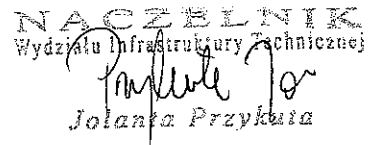 NACZELNIK
Wydziału Infrastruktury Technicznej
Jolanta Przykuta